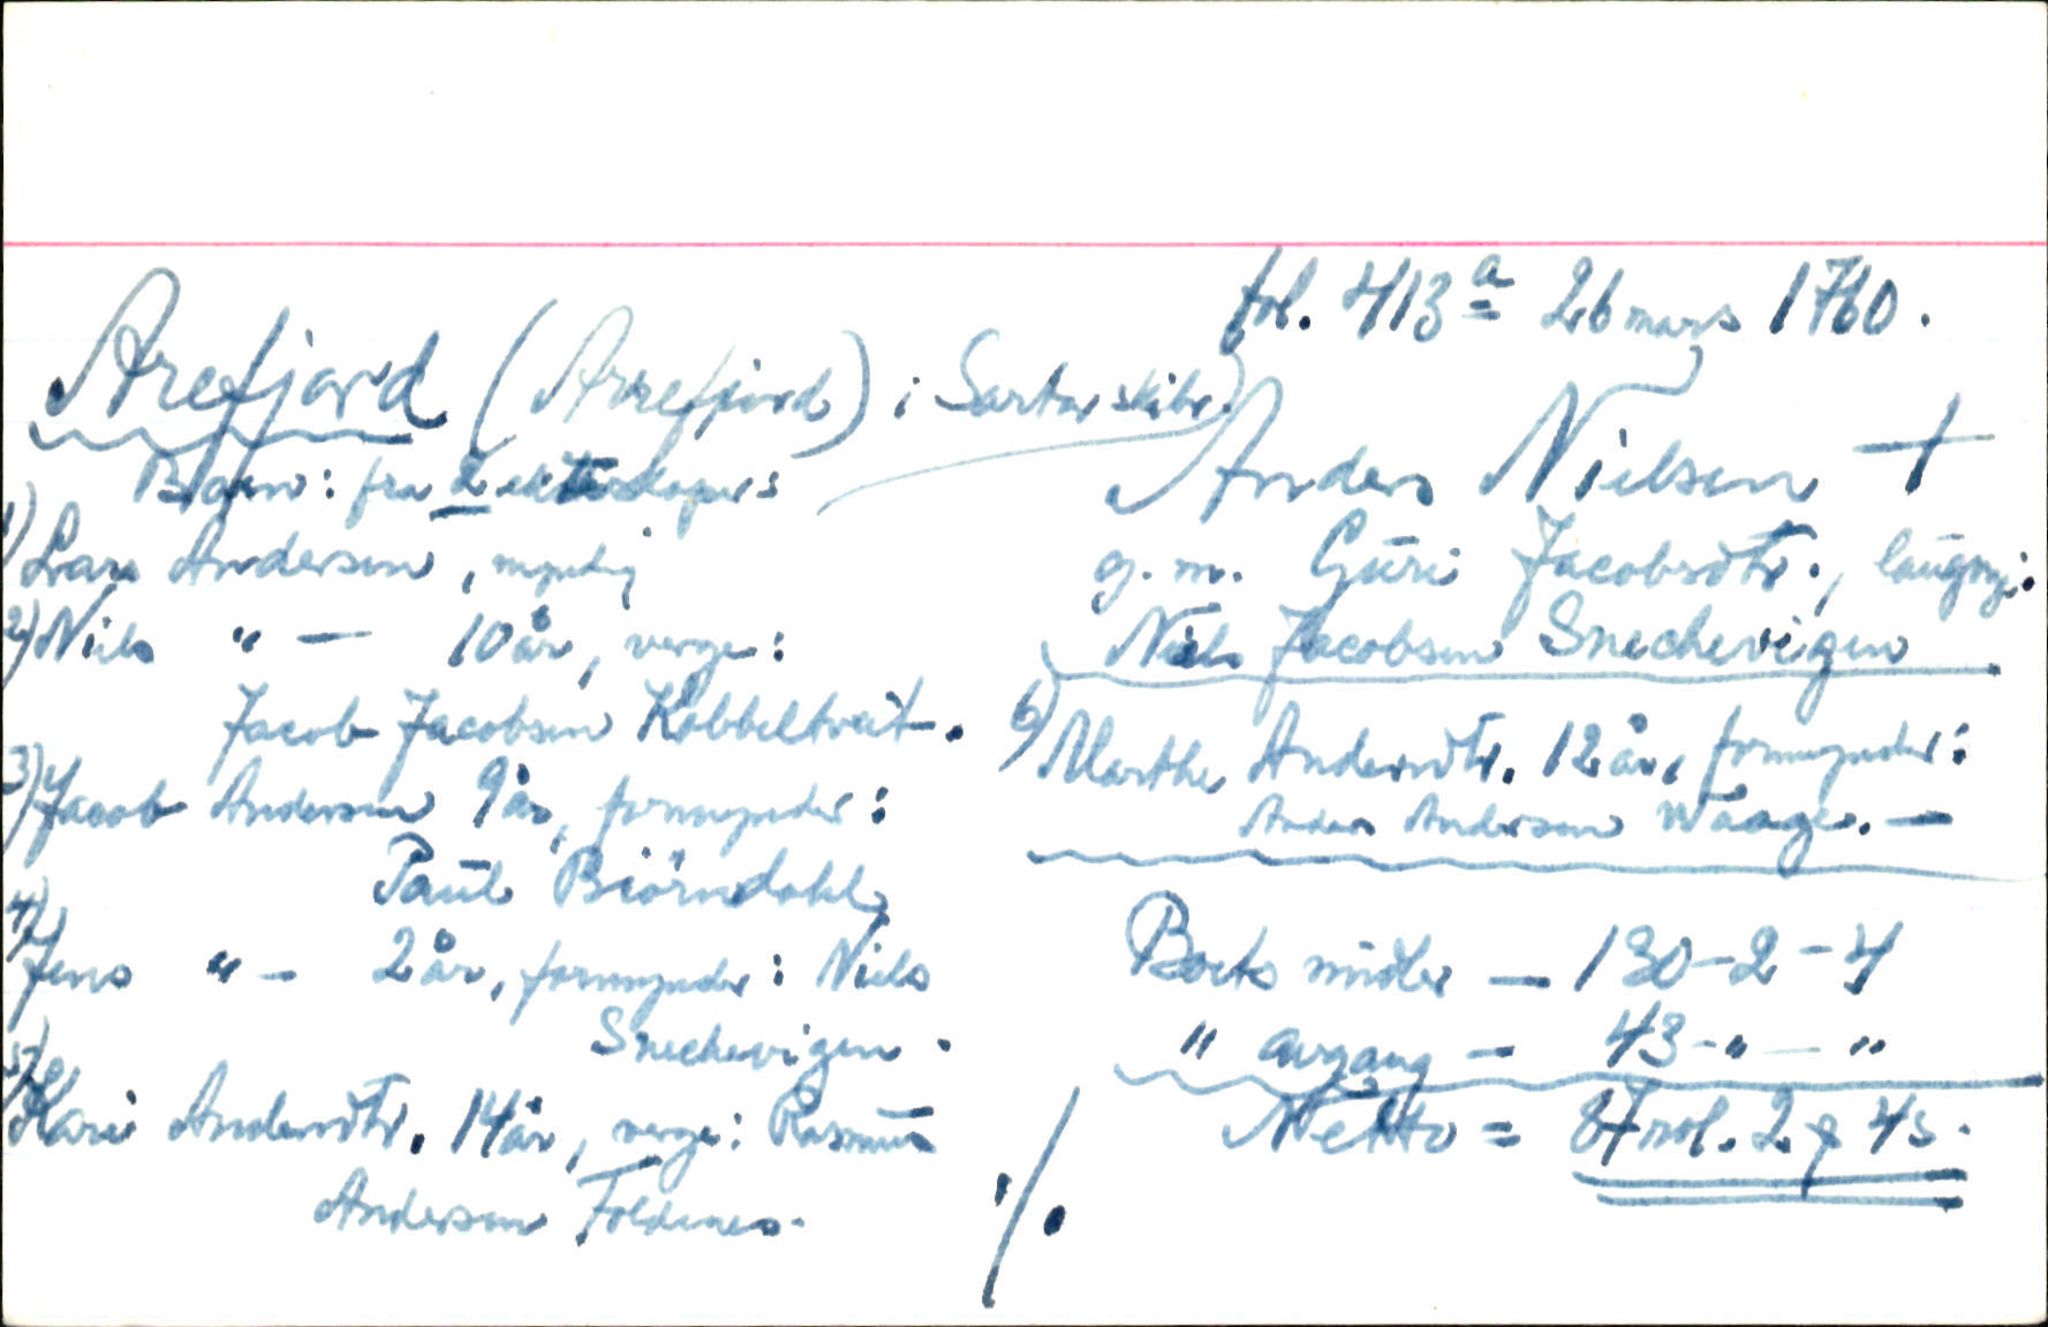 fol. 413a 26 mars 1760.
Arefjord (Arrefjord) i Sartor skibr.
Børn: fra 2 ekteskaper:
1) Lars Andersen, myndig
2) Niels " — 10 år, verge:
Jacob Jacobsen Kobbeltveit.
3) Jacob Andersen 9 år, formynder:
Paul Biörndahl
4) Jens " — 2 år, formynder: Niels
Snechevigen.
5) Kari Andersdtr. 14 år, verge: Rasmus
Andersen Foldenes.
Anders Nielsen +
g. m. Guri Jacobsdtr., laugv.:
Niels Jacobsen Snechevigen
6) Marthe Andersdtr. 12 år, formynder:
Anders Andersen Waage. —
Boets midler — 130 - 2 - 4
" avgang — 43 - " — "
Netto = 87 rdl. 2 ƒ 4 s.